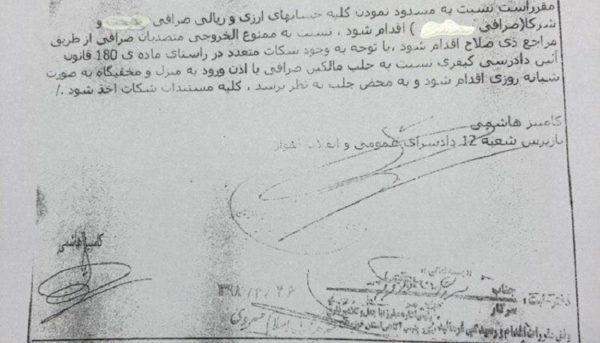 مقرراست نسبت به مسدود نمودن کلیه حسابهای ارزی و ریالی صرافی و
شرکا(صرافی ) اقدام شود ، نسبت به ممنوع الخروجی متصدیان صرافی از طریق
مراجع ذی صلاح اقدام شود ،با توجه به وجود شکات متعدد در راستای ماده ی 180 قانون
آئین دادرسی کیفری نسبت به جلب مالکین صرافی با اذن ورود به منزل و مخفیگاه به صورت
شبانه روزی اقدام شود و به محض جلب به نظر برسد ، کلیه مستندات شکات اخذ شود ./
کامبیز هاشمی
بازپرس شعبه 12 دادسرای عمومی و انقلاب اهواز
کامبیز هاشمی
جناب
سرکار
۱۳۹۸/۲/۲۶